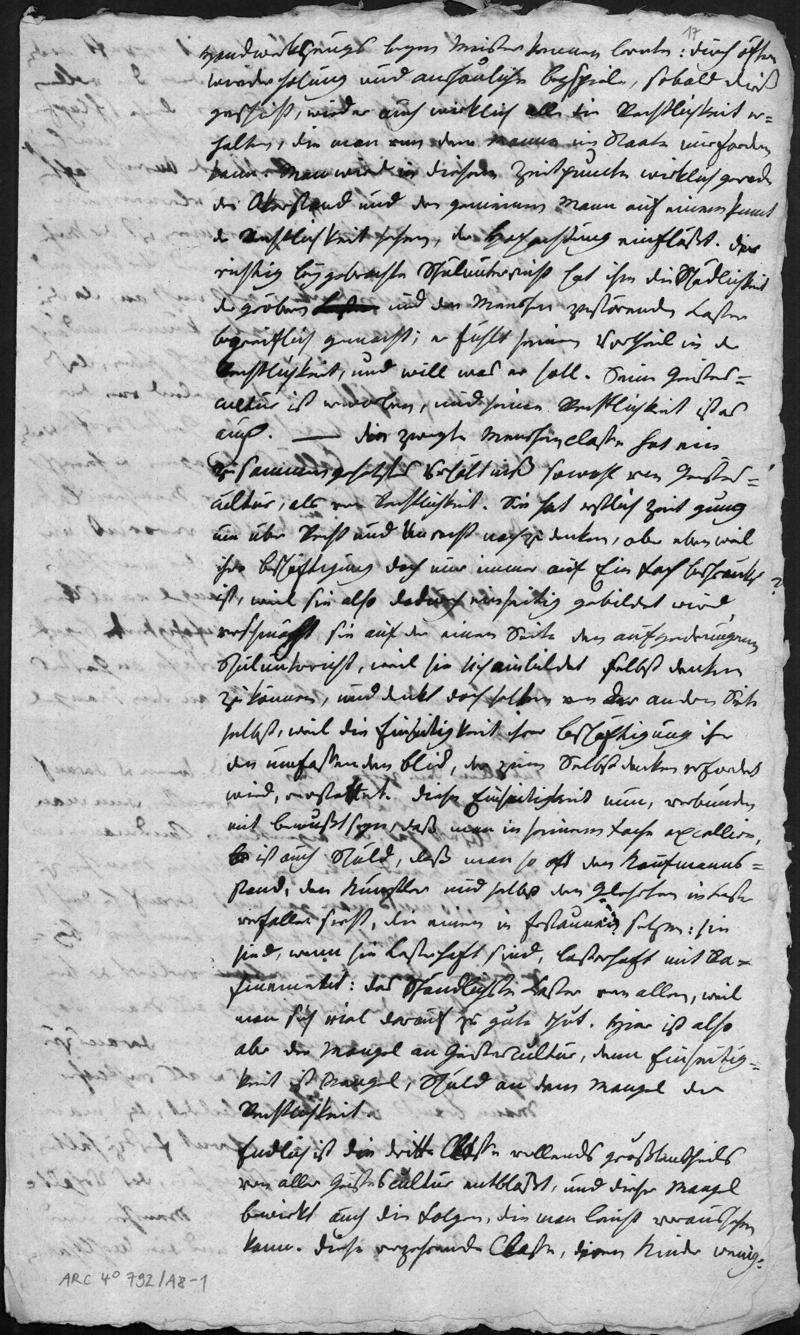 17
Handwerkszeugs beym Meister kennen lernte: durch öftere
Wiederholung und anschauliche Beyspiele, sobald dieß
geschieht, wird er auch wirklich alle die Rechtlichkeit er=
halten, die man von dem Manne im Staate fordern
kann. Man wird in diesem Zeitpuncte wirklich gerade
den und den gemeinen Mann auf einem Punct
der Rechtlichkeit sehen, der Hochachtung einflößt. Der
richtig beygebrachte Schulunterricht hat ihm die Schädlichkeit
der gröbern und den Menschen zerstörenden Laster
begreiflich gemacht; er fühlt seinen Vortheil in der
Rechtlichkeit, und will was er soll. Seine Geistes=
cultur ist erworben, und seine Rechtlichkeit ist es
auch. — Die zweyte Menschenclasse hat ein
zusammengesetztes Verhältniß sowohl von Geistes=
cultur, als von Rechtlichkeit. Sie hat erstlich Zeit genug
um über Recht und Unrecht nachzudenken, aber eben weil
ihre Beschäftigung doch nur immer auf Ein Fach beschränkt
ist, weil sie also dadurch einseitig gebildet wird,
verschmäht sie auf der einen Seite den
Schulunterricht, weil sie sich einbildet selbst denken
zu können, und denkt doch selten von der andern Seite
selbst, weil die Einseitigkeit ihrer Beschäftigung ihr
den umfassenden Blick, der zum Selbstdenken erfordert
wird, Diese Einseitigkeit nun, verbunden
mit Bewußtseyn, daß man in seinem Fache excellire,
ist auch Schuld, daß man so oft den Kaufmanns=
stand, den Künstler und selbst den Gelehrten in Laster
verfallen sieht, die einen in Erstaunen setzen: sie
sind, wenn sie lasterhaft sind, lasterhaft mit Ra=
finement: das schändlichste Laster von allen, weil
man sich viel darauf zu gute thut. Hier ist also
aber der Mangel an Geistescultur, denn Einseitig=
keit ist Mangel, Schuld an dem Mangel der
Rechtlichkeit.
Endlich ist die dritte Classe vollends größtentheils
von aller Geistescultur entblößt, und dieser Mangel
bewirkt auch die Folgen, die man leicht voraussehen
kann. Diese Classe, deren Kinder wenig=
ARC 4° 792/A8-1